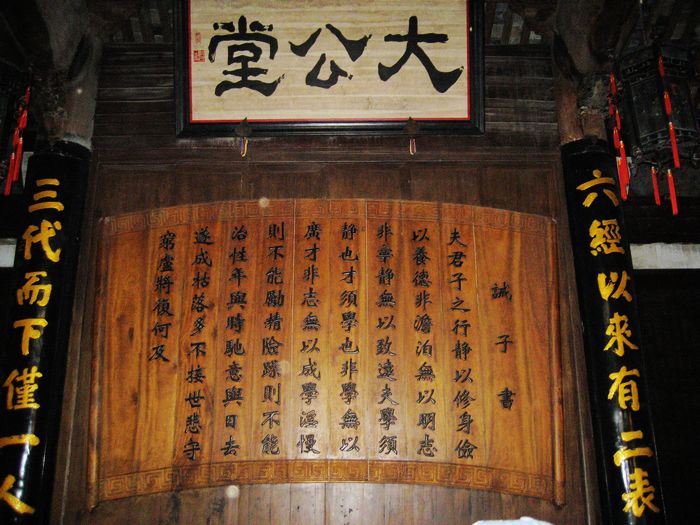 大公堂
六經以來有二表
誡子書
夫君子之行静以修身儉
以養德非澹泊無以明志
非寧静無以致遠夫學須
静也才須學也非學無以
廣才非志無以成學滛慢
則不能勵精險躁則不能
治性年與時馳意與日去
遂成枯落多不接世悲守
窮廬將復何及
三代而下僅一人